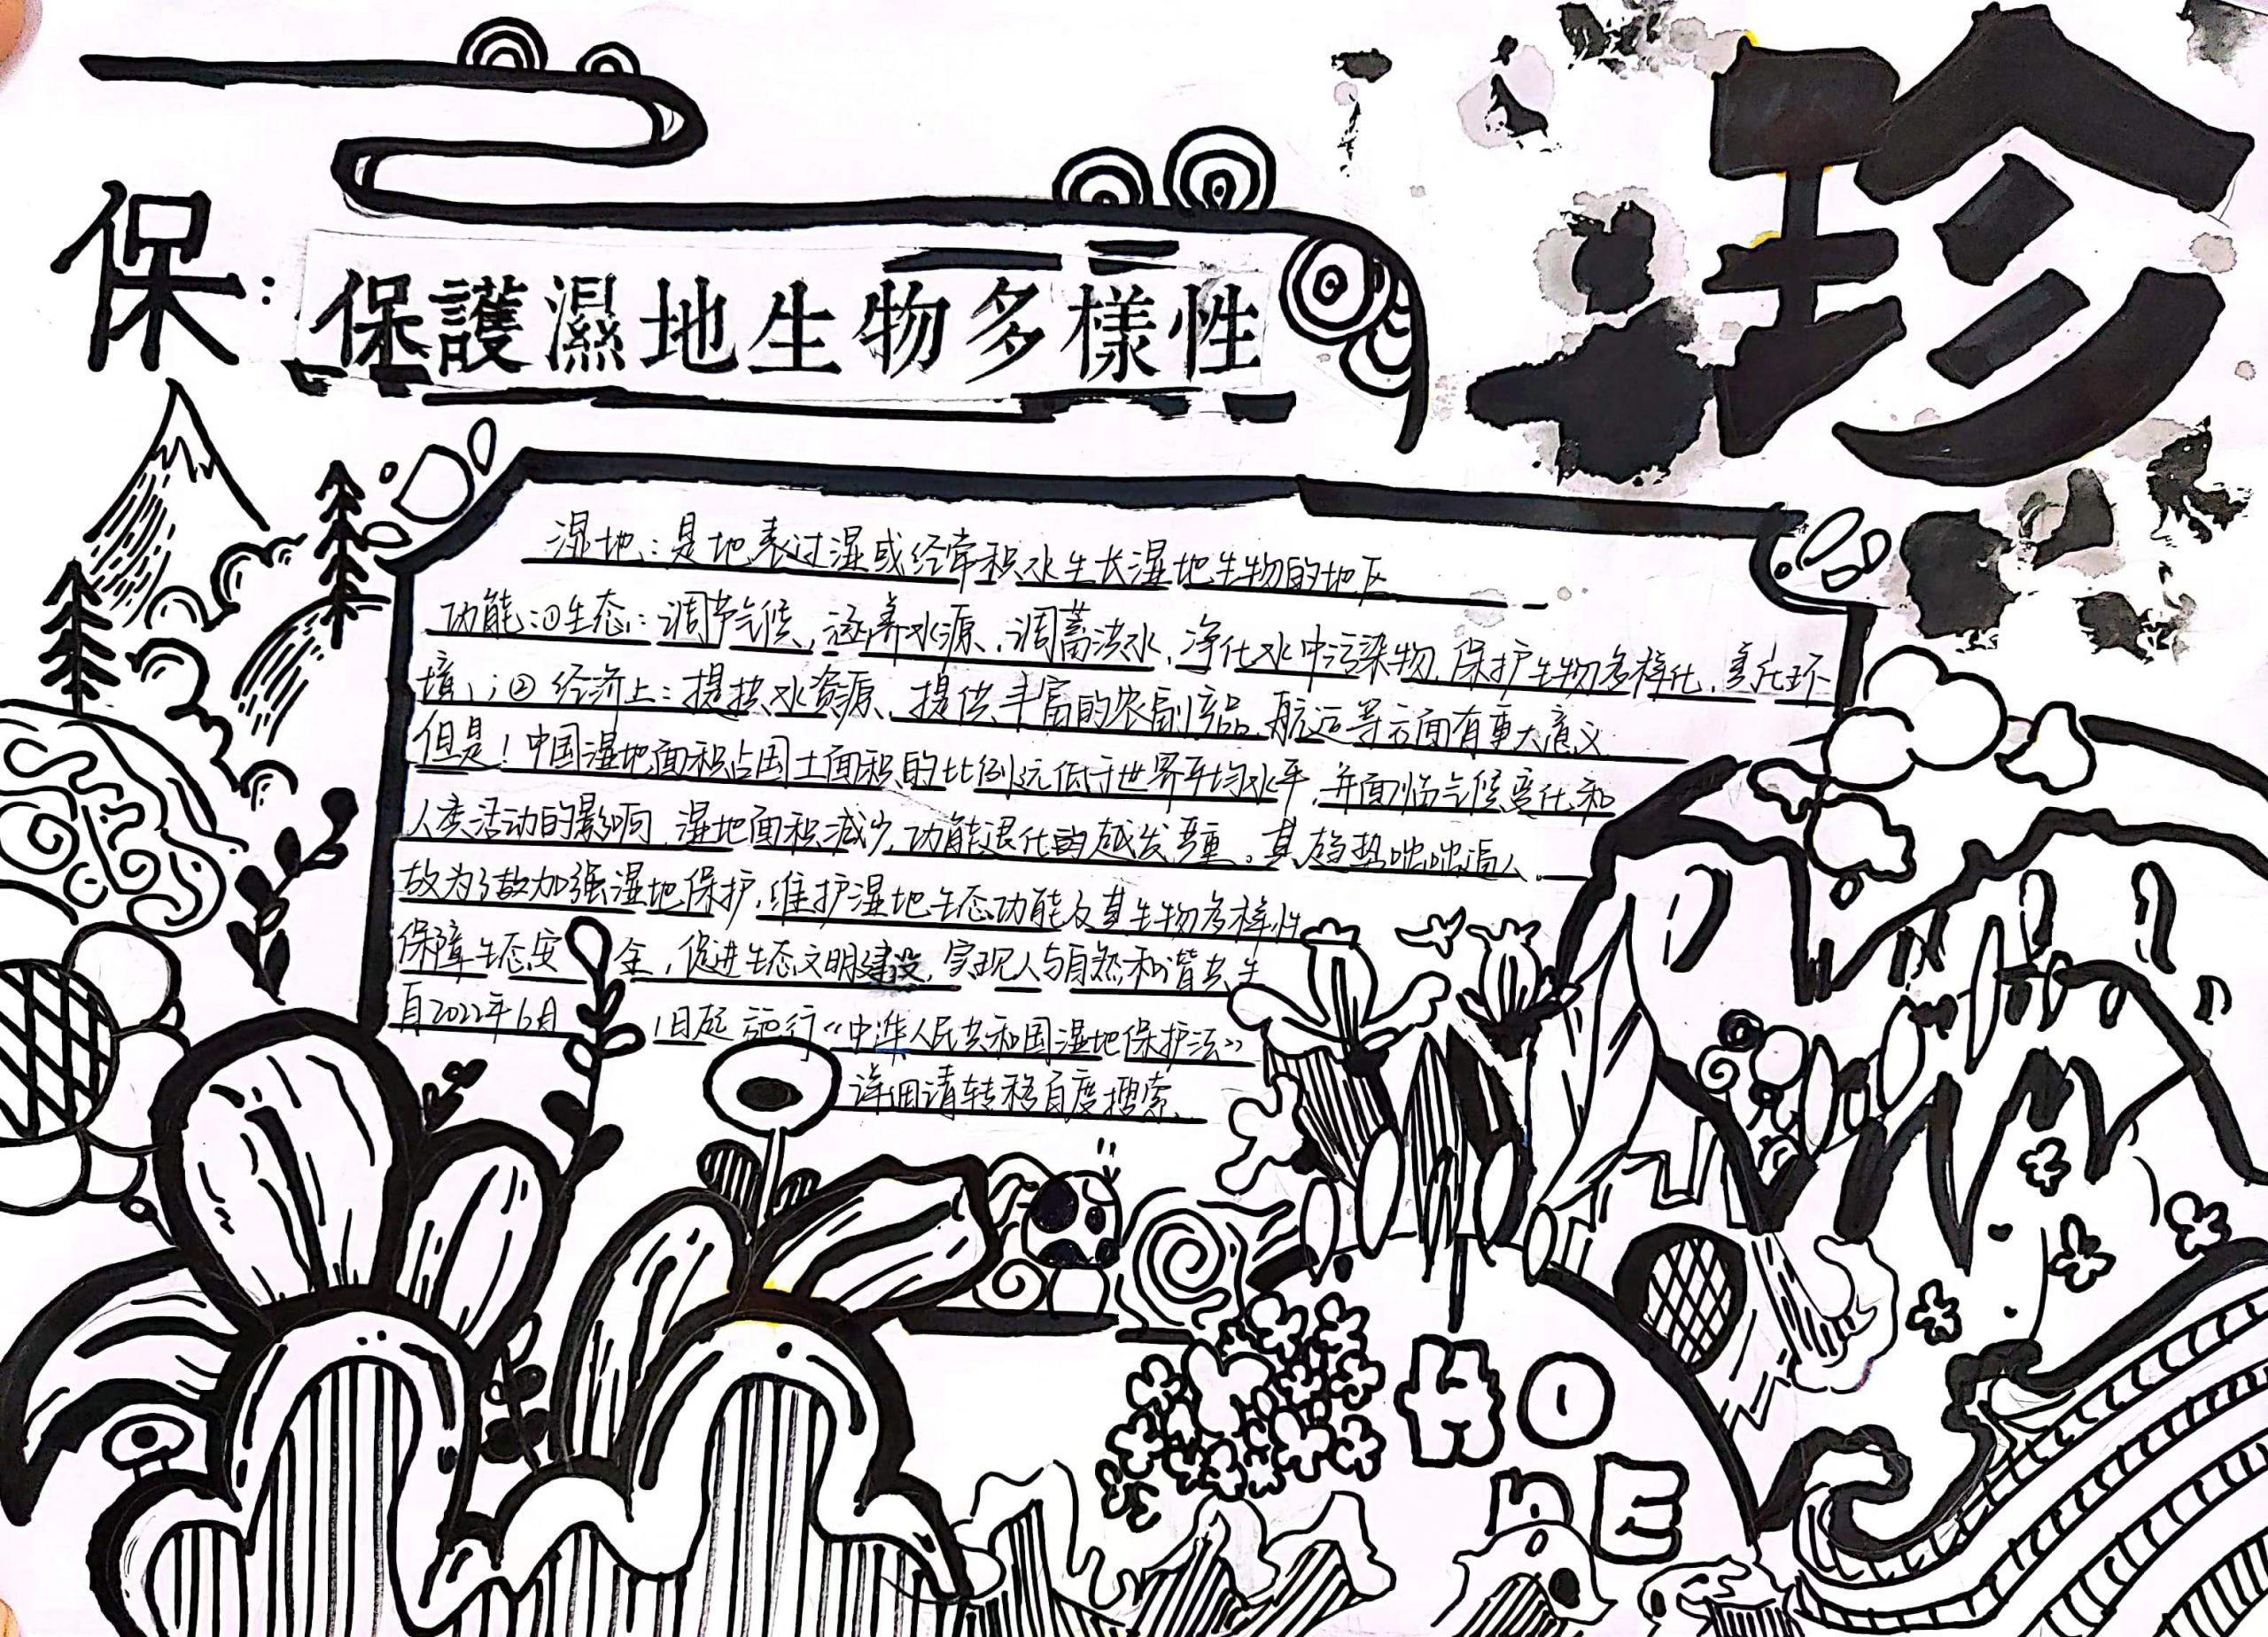 珍
保:
保護濕地生物多樣性
湿地:是地表过湿或经常积水生长湿地生物的地区
功能:①生态:调节气候,涵养水源,调蓄洪水,净化水中污染物,保护生物多样化,美化环
境;②经济上:提供水资源、提供丰富的农副产品,航运等方面有重大意义
但是!中国湿地面积占国土面积的比例远低于世界平均水平,并面临气候变化和
人类活动的影响,湿地面积减少,功能退化的越发严重。其趋势咄咄逼人
故为了加强湿地保护,维护湿地生态功能及其生物多样性
保障生态安全,促进生态文明建设,实现人与自然和谐共生
自2022年6月1日起施行《中华人民共和国湿地保护法》
详细请转移百度搜索
HO
ME